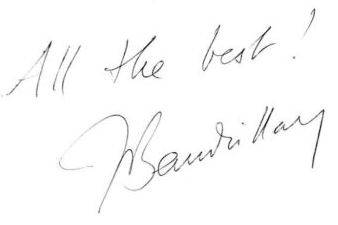 All the best!
JBaudrillard